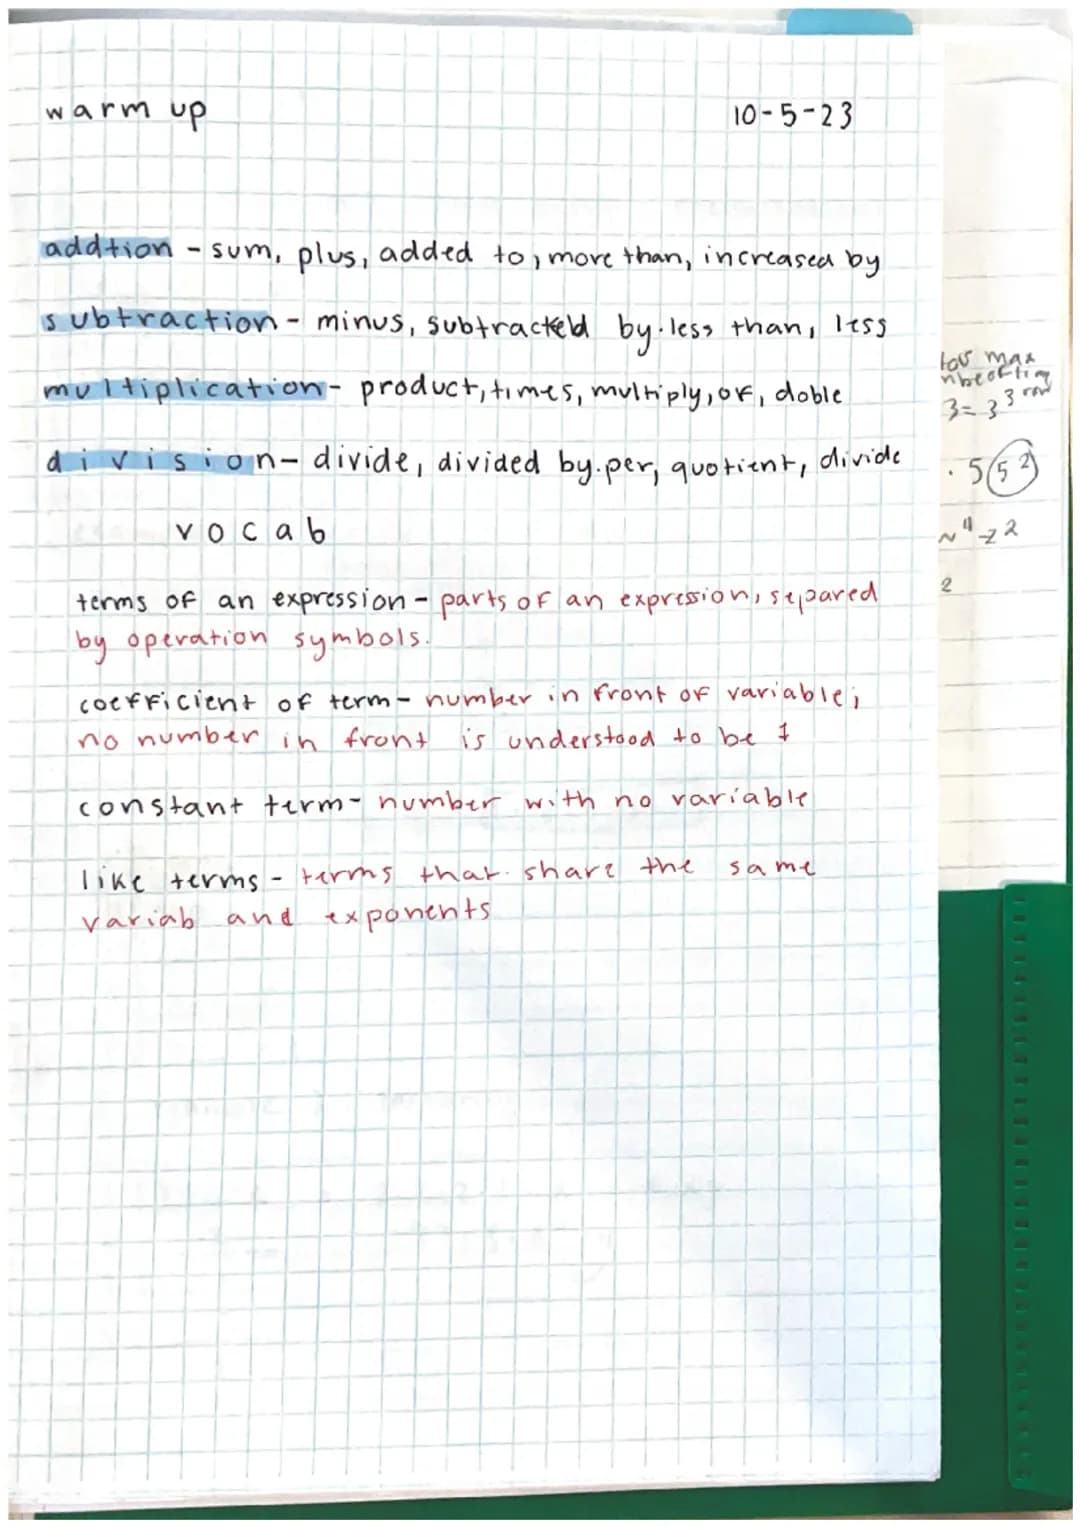 warm up
10-5-23
addtion - sum, plus, added to, more than, increased by
subtraction - minus, subtracteld by. less than, less
multiplication - product, times, multiply, of, doble
division - divide, divided by. per, quotient, divide
vocab
terms of an expression - parts of an expression, separed
by operation symbols.
coefficient of term - number in front of variable;
no number in front is understood to be 1
constant term - number with no variable
like terms - terms that share the same
variab and exponents
max
3 = 3³
· 5(5²)
2